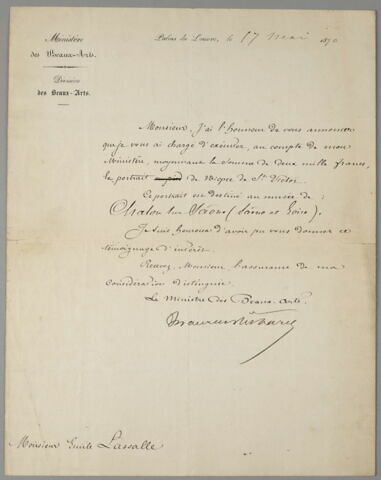 Ministère
des Beaux-Arts.
Division
des Beaux-Arts.
Palais du Louvre, le 17 mai 1870
Monsieur, J'ai l'honneur de vous annoncer
que je vous ai chargé d'exécuter, au compte de mon
Ministère, moyennant la somme de deux mille francs,
le portrait de Niepce de St Victor
Ce portrait est destiné au musée de :
Chalon sur Saône (Saône et Loire).
Je suis heureux d'avoir pu vous donner ce
témoignage d'intérêt.
Recevez, Monsieur, l'assurance de ma
considération distinguée.
Le Ministre des Beaux-Arts.
Maurice Richard
Monsieur Emile Lassalle